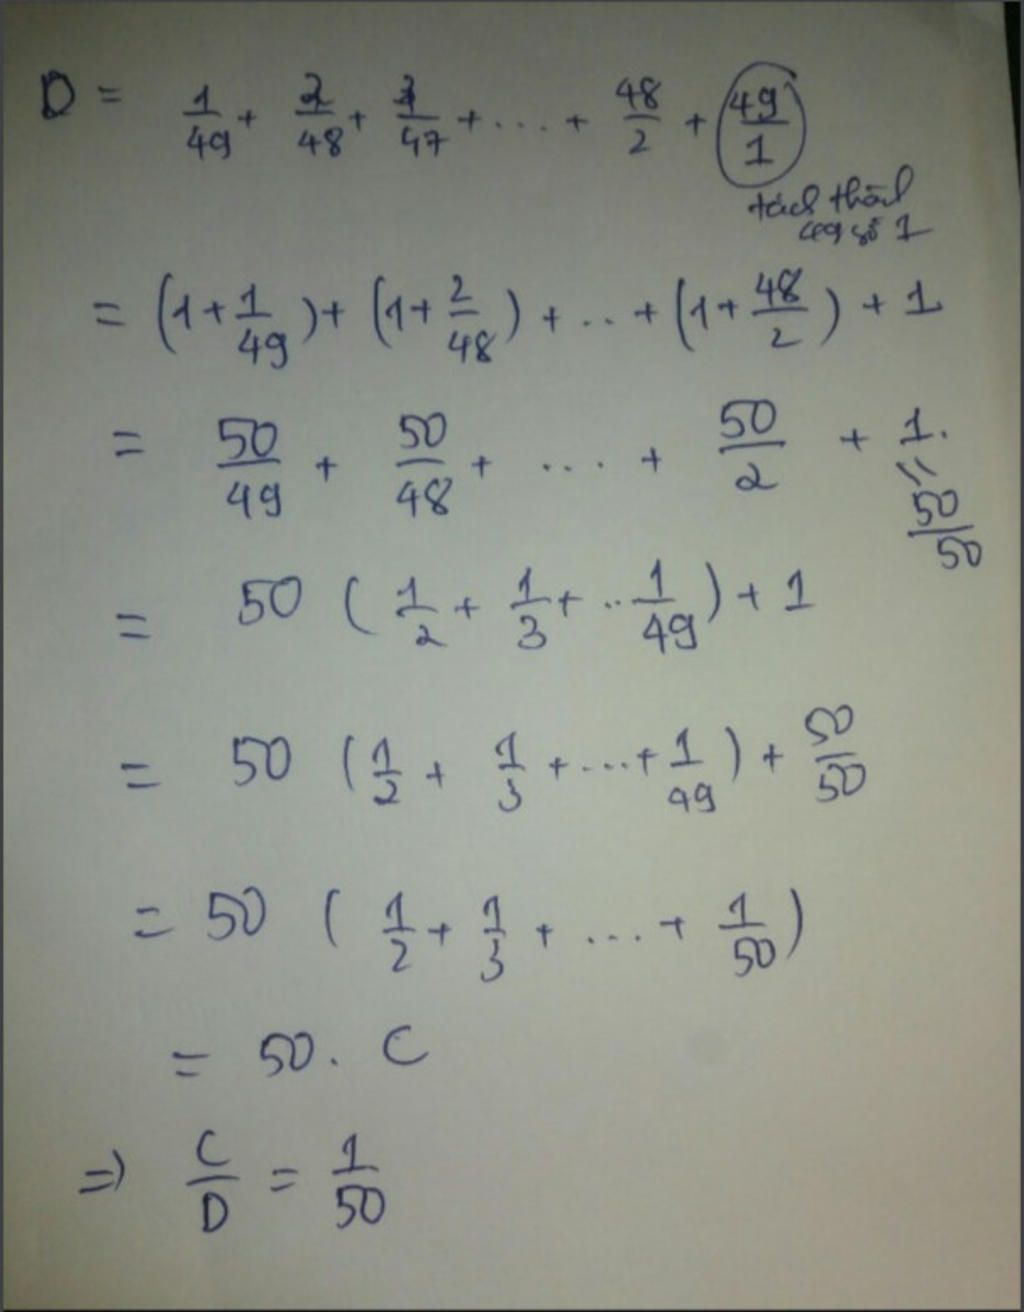 D = 1/49 + 2/48 + 3/47 + .... + 48/2 + 49/1
tách thành
49 số 1
= (1 + 1/49) + (1 + 2/48) + ... + (1 + 48/2) + 1
= 50/49 + 50/48 + .... + 50/2 + 1.
= 50/50
= 50 (1/2 + 1/3 + .. 1/49) + 1
= 50 (1/2 + 1/3 + ... + 1/49) + 50/50
= 50 (1/2 + 1/3 + .... + 1/50)
= 50. C
=> C/D = 1/50